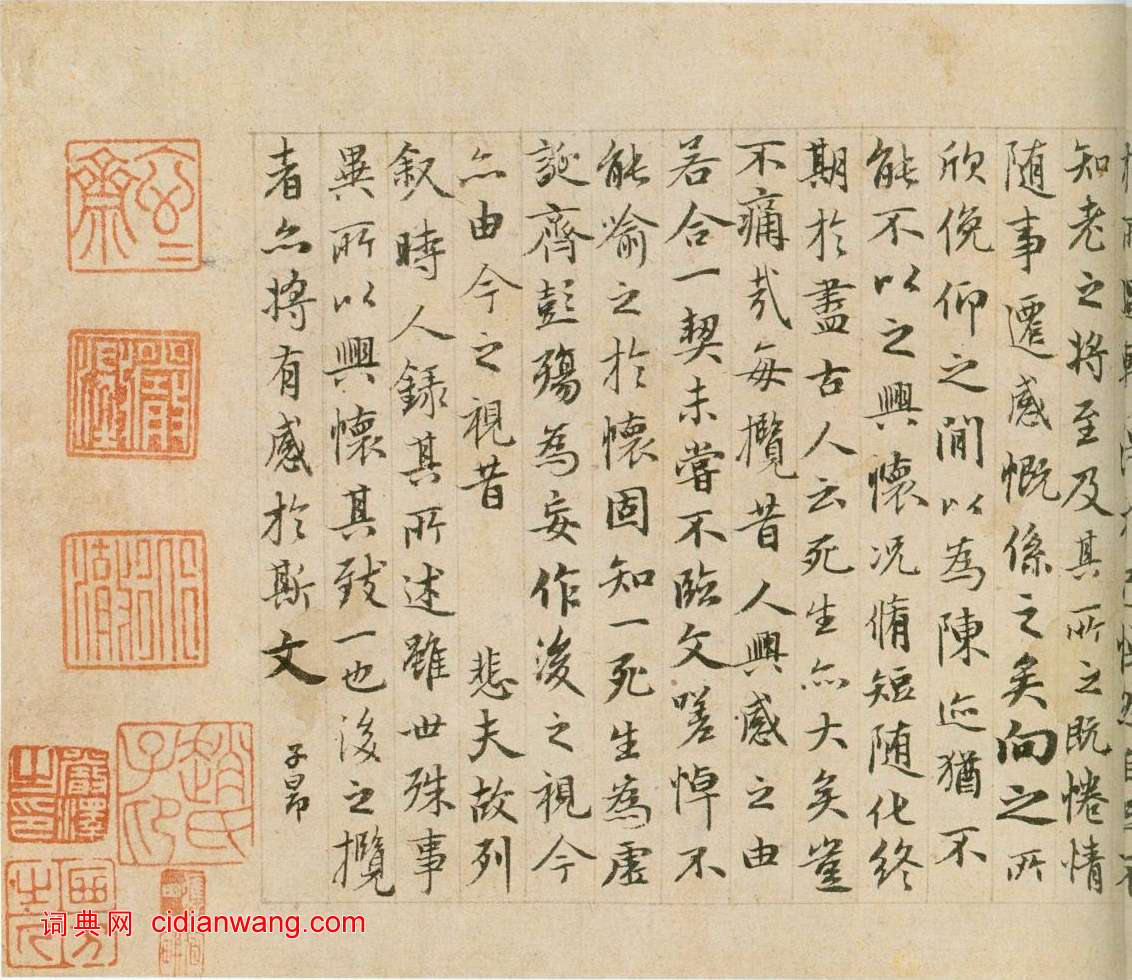 知老之將至及其所之既惓情
随事遷感慨係之矣向之所
欣俛仰之閒以為陳迹猶不
能不以之興懷况脩短随化終
期於盡古人云死生亦大矣豈
不痛哉每攬昔人興感之由
若合一契未嘗不臨文嗟悼不
能喻之於懷固知一死生為虚
誕齊彭殤為妄作後之視今
亦由今之視昔 悲夫故列
叙時人録其所述雖世殊事
異所以興懷其致一也後之攬
者亦將有感於斯文
子昂
趙氏子昂
嚴澤之印
词典网 cidianwang.com